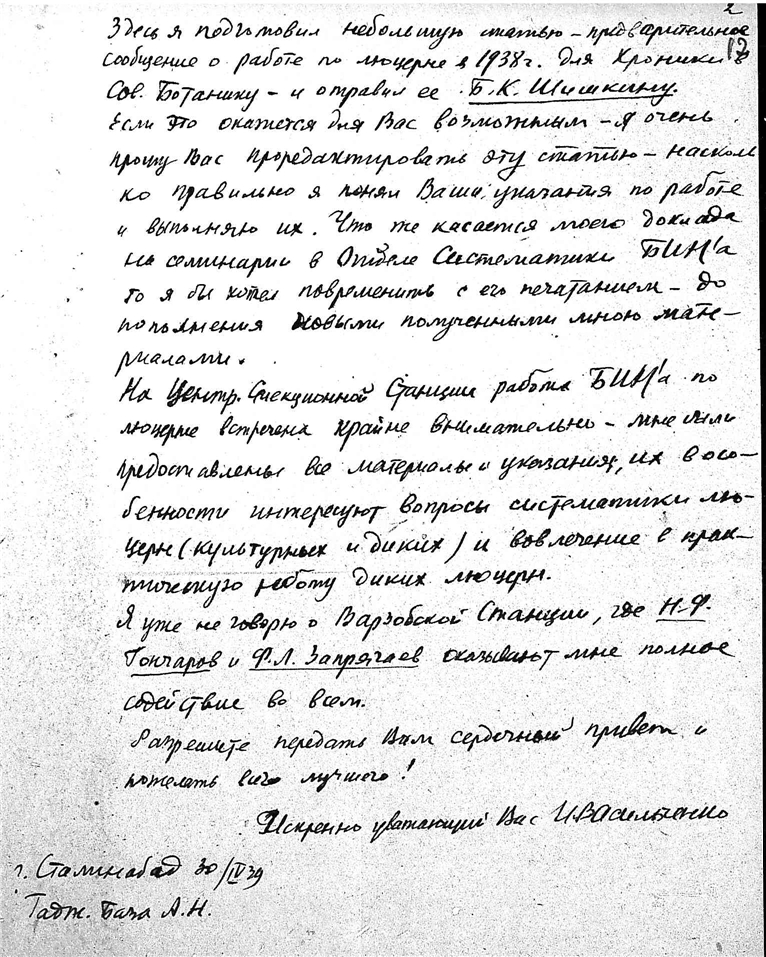 2
12
Здесь я подготовил небольшую статью – предварительное
сообщение о работе по люцерне в 1938 г. для Хроники в
Сов. Ботанику – и отправил ее Б. К. Шишкину.
Если это окажется для Вас возможным – я очень
прошу Вас проредактировать эту статью – насколь
ко правильно я понял Ваши указания по работе
и выполняю их. Что же касается моего доклада
на семинарии в Отделе Систематики БИН'а
то я бы хотел повременить с его печатанием – до
пополнения новыми полученными мною мате-
риалами.
На Центр. Селекционной Станции работа БИН'а по
люцерне встречена крайне внимательно – мне были
предоставлены все материалы и указания, их в осо-
бенности интересуют вопросы систематики лю-
церн (культурных и диких) и вовлечение в прак-
тическую работу диких люцерн.
Я уже не говорю о Варзобской Станции, где Н.Ф.
Гончаров и Ф.Л. Запрягаев оказывают мне полное
содействие во всем.
Разрешите передать Вам сердечный привет и
пожелать всего лучшего!
Искренно уважающий Вас И Васильченко
г. Сталинабад 30/IV 39
Тадж. База А.Н.